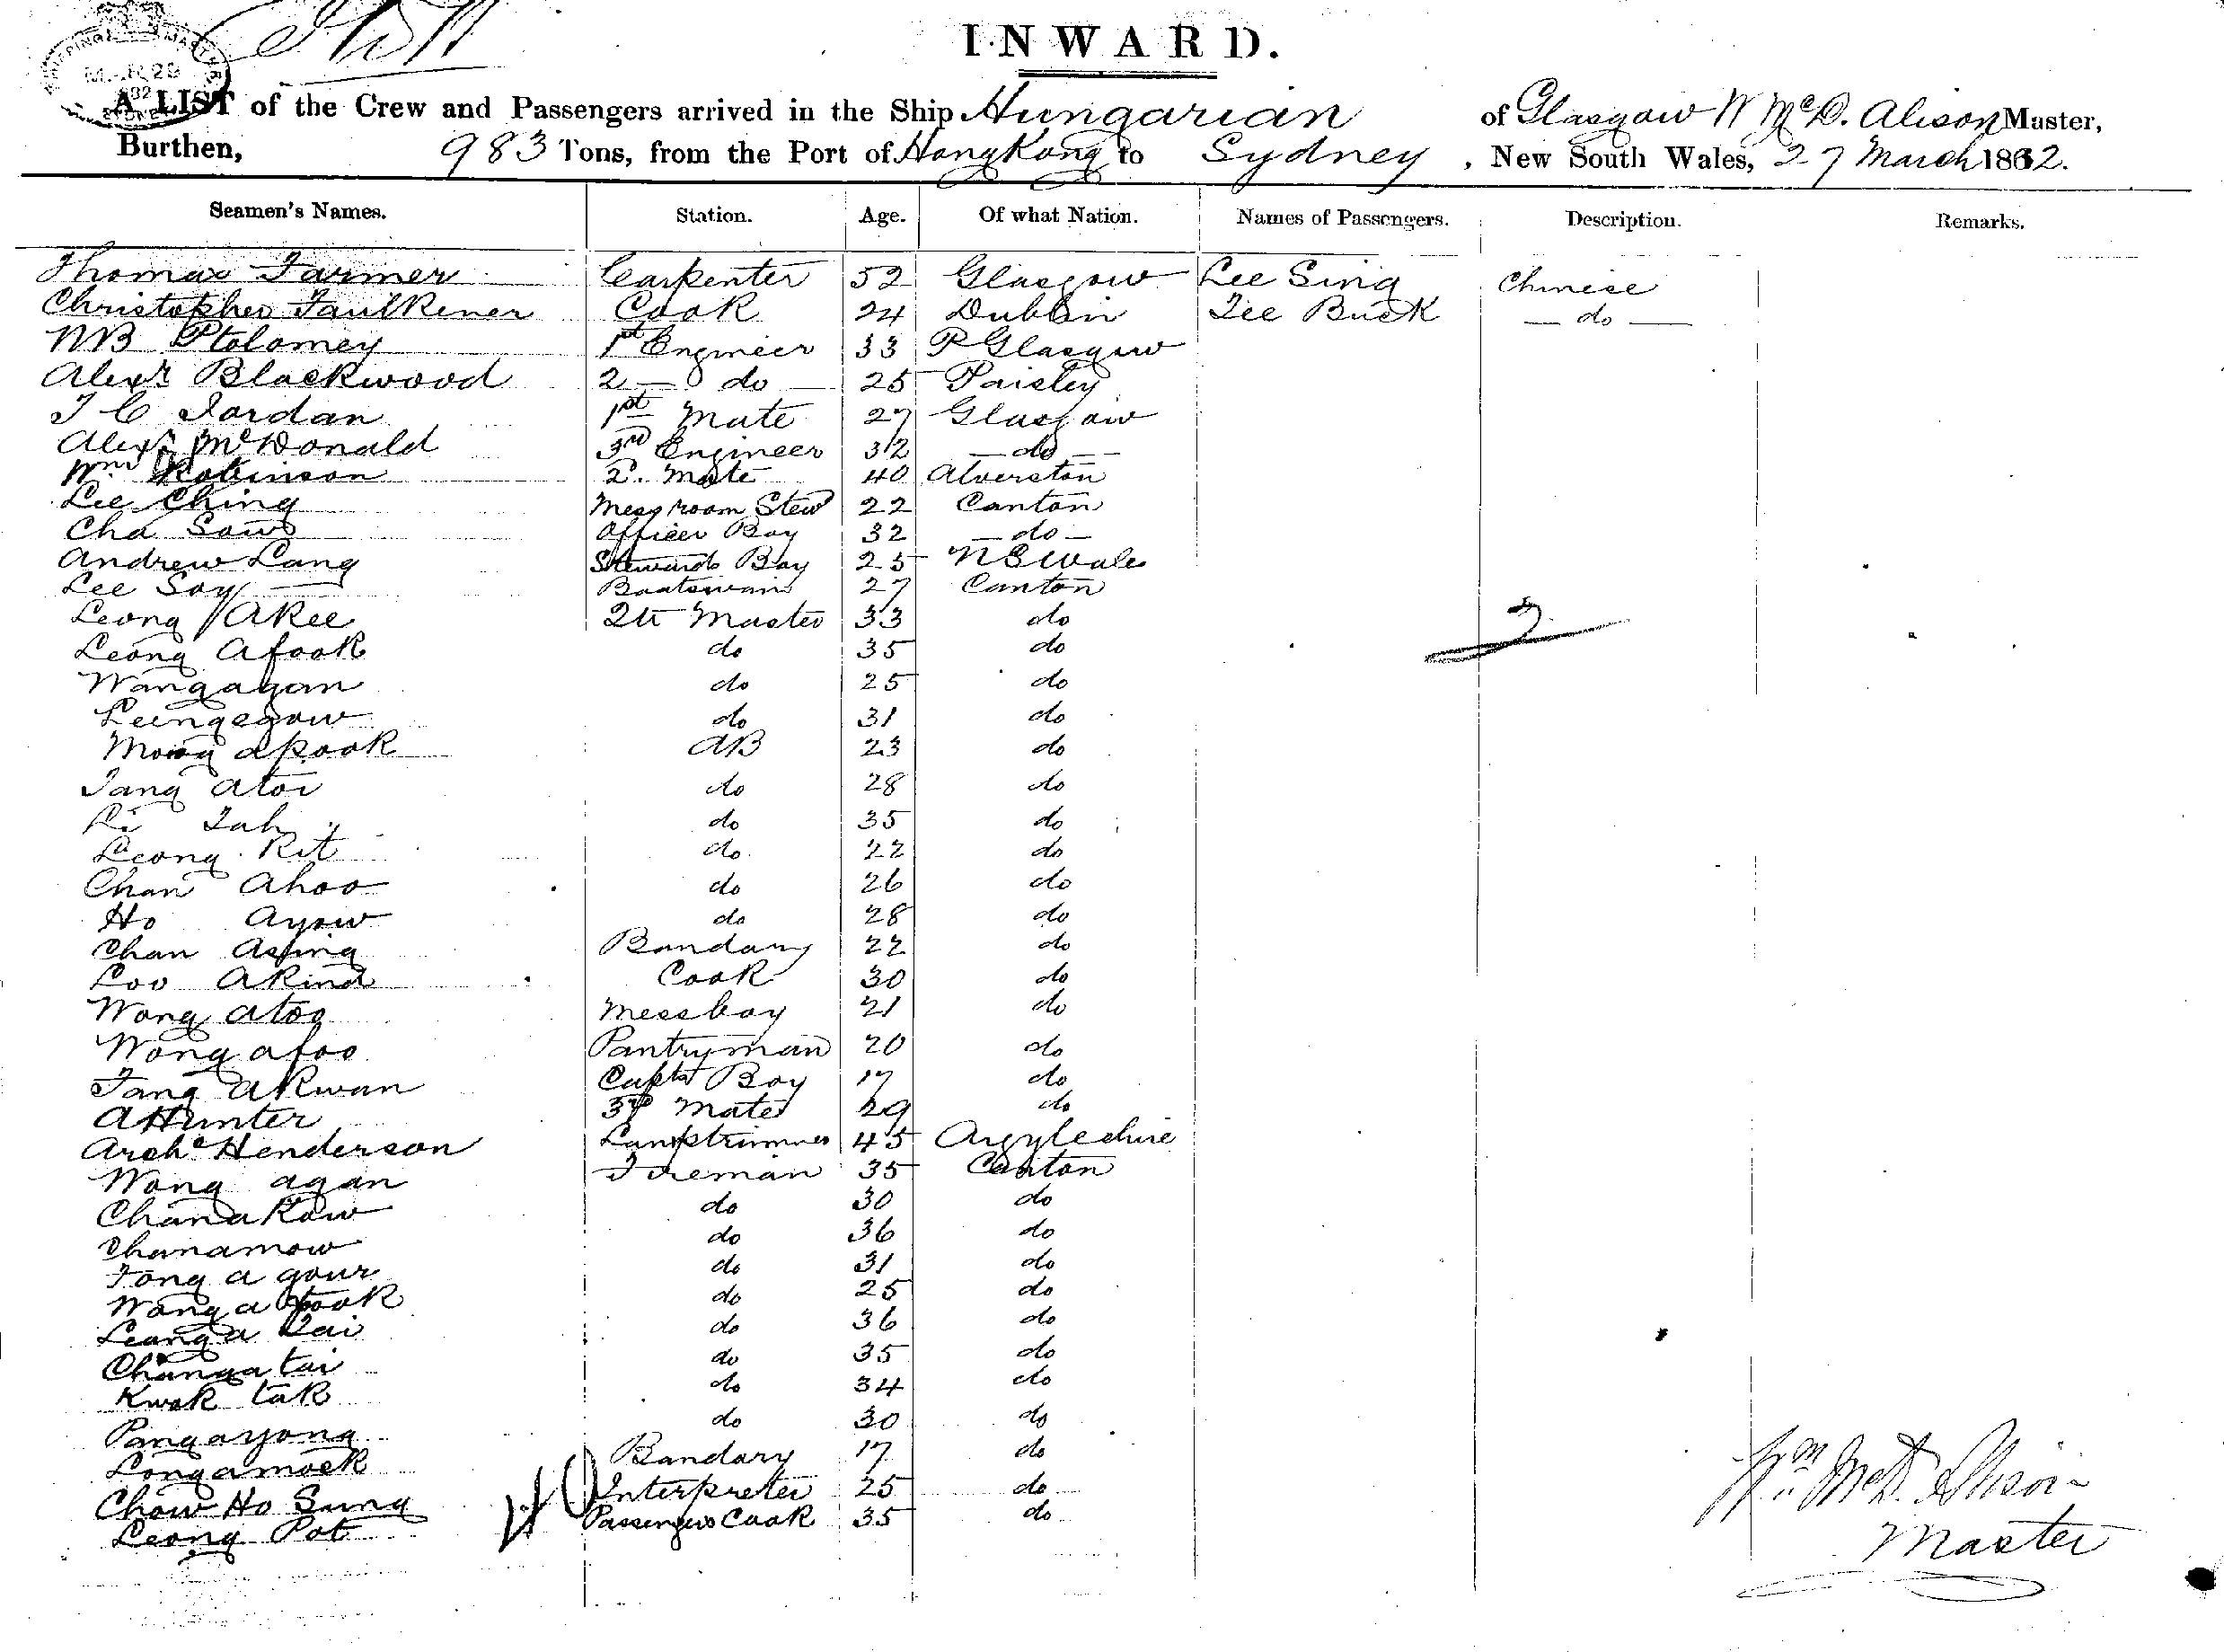 INWARD.
A LIST of the Crew and Passengers arrived in the Ship Hungarian of Glasgow W McD. Alison Master,
Burthen, 983 Tons, from the Port of Hong Kong to Sydney, New South Wales, 27 March 1882.
Seamen's Names. Station. Age. Of what Nation. Names of Passengers. Description. Remarks.
Thomas Farmer Carpenter 52 Glasgow Lee Sing Chinese
Christopher Faulkener Cook 24 Dublin Lee Buck — do —
Ptolomey 1st Engineer 33 P Glasgow
Alexr Blackwood 2 — do — 25 Paisley
J C Jordan 1st Mate 27 Glasgow
Alexr McDonald 3rd Engineer 32 — do —
Wm Robinson 2. Mate 40 Alverston
Lee Ching Messroom Stewd 22 Canton
Cha Sow Officer Boy 32 — do —
Andrew Lang Stewards Boy 25 N S Wales
Lee Soy Boatswain 27 Canton
Leong Akee Qtr Master 33 do
Leong Afook do 35 do
Wangagan do 25 do
Leengegow do 31 do
Mong apook AB 23 do
Tang Atoi do 28 do
Li Tah do 35 do
Leong Kit do 22 do
Chan Ahoo do 26 do
Ho Ayow do 28 do
Chan Asing Bandary 22 do
Loo Akind Cook 30 do
Wong atoo Messboy 21 do
Wong afoo Pantryman 20 do
Tang Akwan Capts Boy 17 do
A Hunter 3rd Mate 29 do
Archd Henderson Lamptrimmer 45 Argyleshire
Wong agan Fireman 35 Canton
Chanakow do 30 do
Chanamow do 36 do
Fong a gour do 31 do
Wong a do 25 do
Leong a Kai do 36 do
Changa tai do 35 do
Kwok tak do 34 do
Pangayong do 30 do
Longamock Bandary 17 do
Chow Ho Sung Interpreter 25 do
Leong Pot Passengers Cook 35 do
2
40
Wm McD. Alison
Master